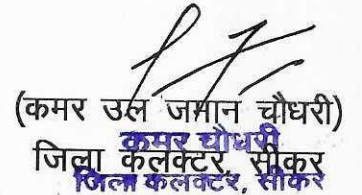 (कमर उल जमान चौधरी)
कमर चौधरी
जिला कलक्टर, सीकर
जिला कलक्टर, सीकर